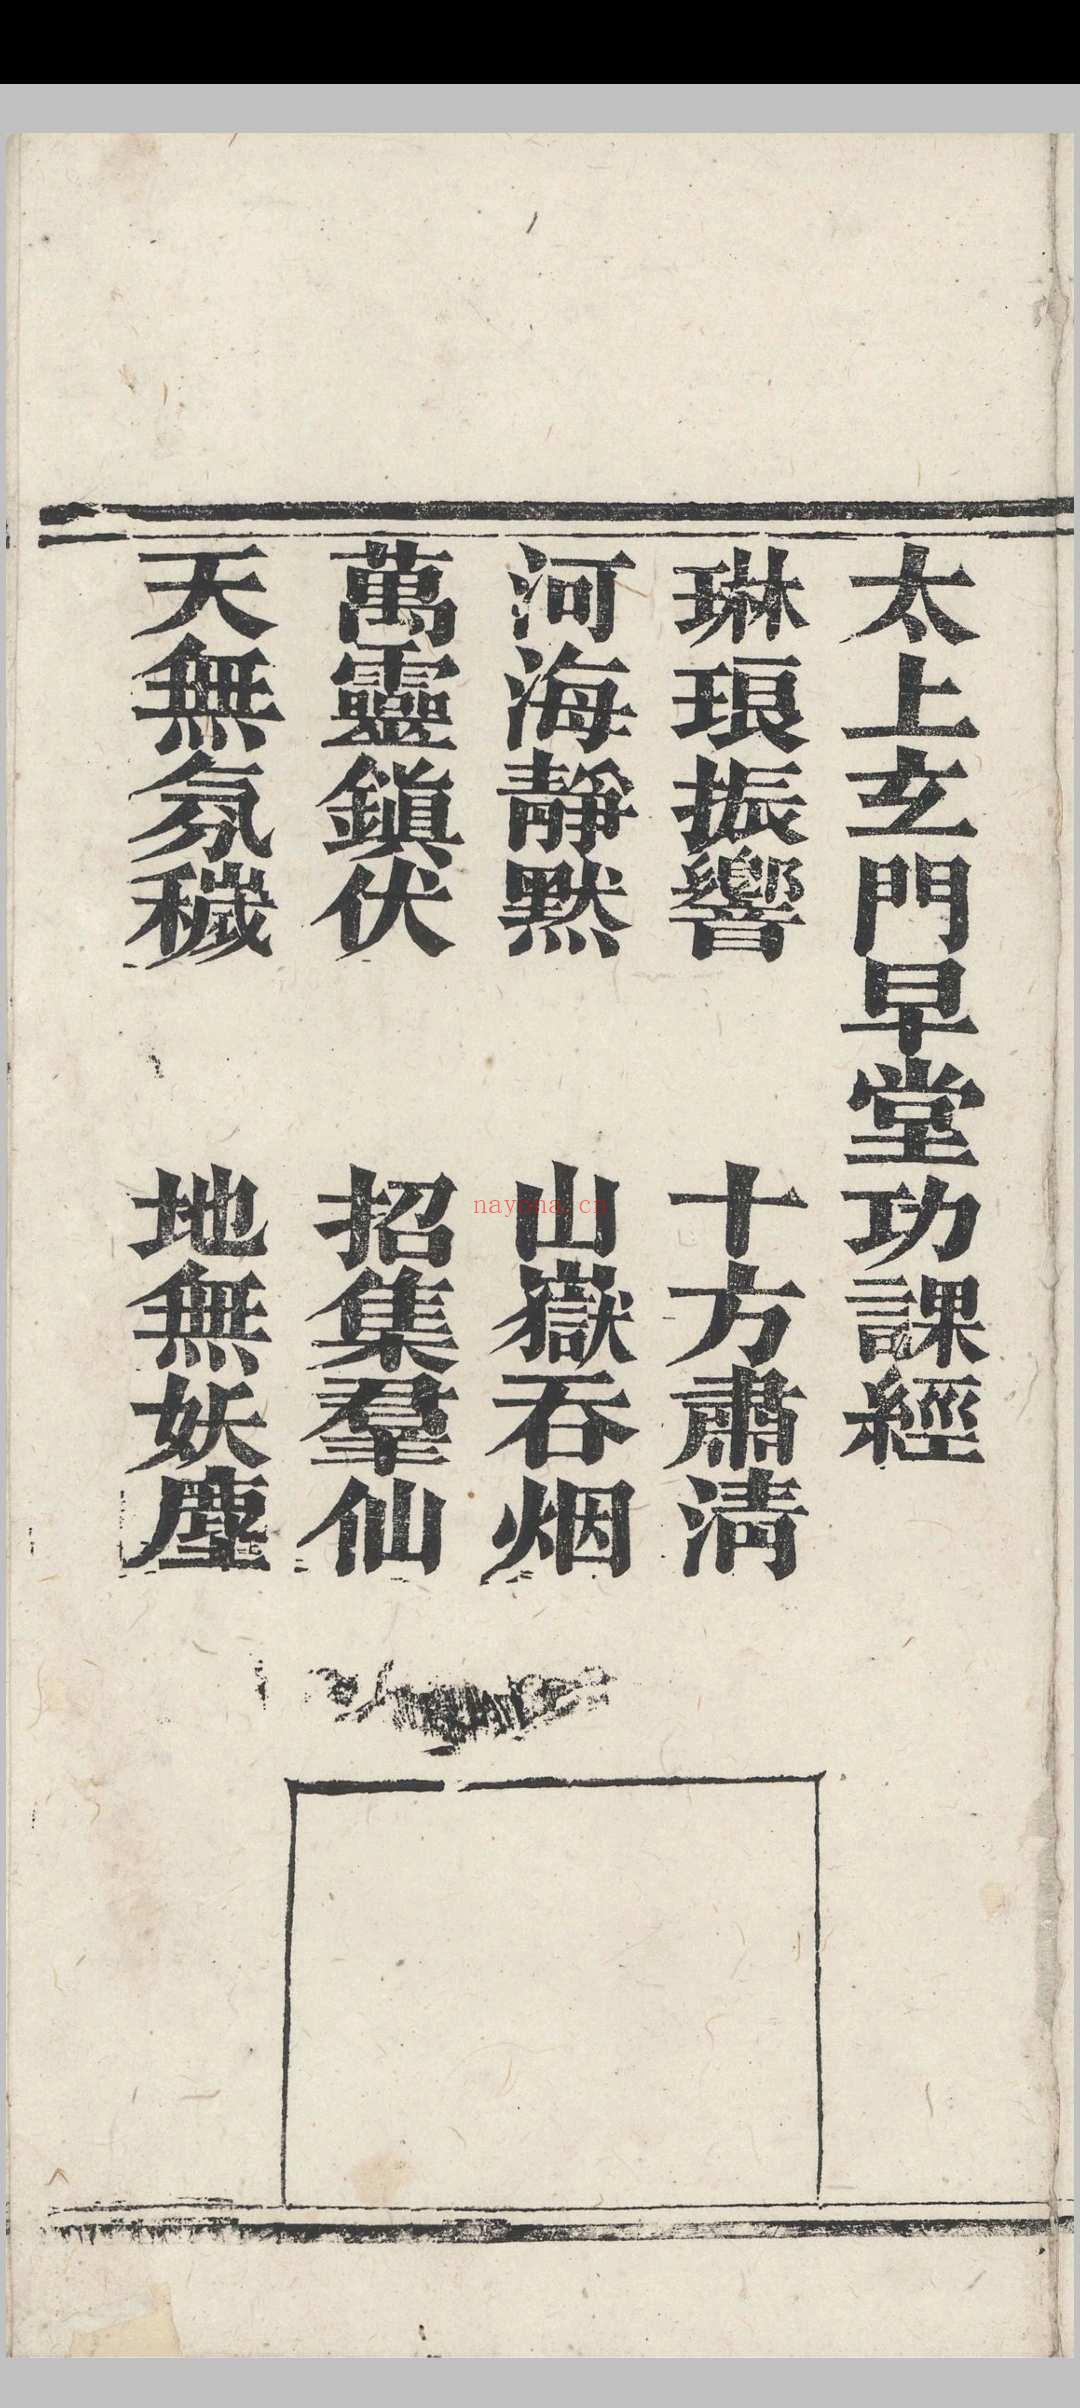 太上玄門早堂功課經
琳琅振響 十方肅清
河海靜默 山嶽吞烟
萬靈鎮伏 招集羣仙
天無氛穢 地無妖塵
nayona.cn